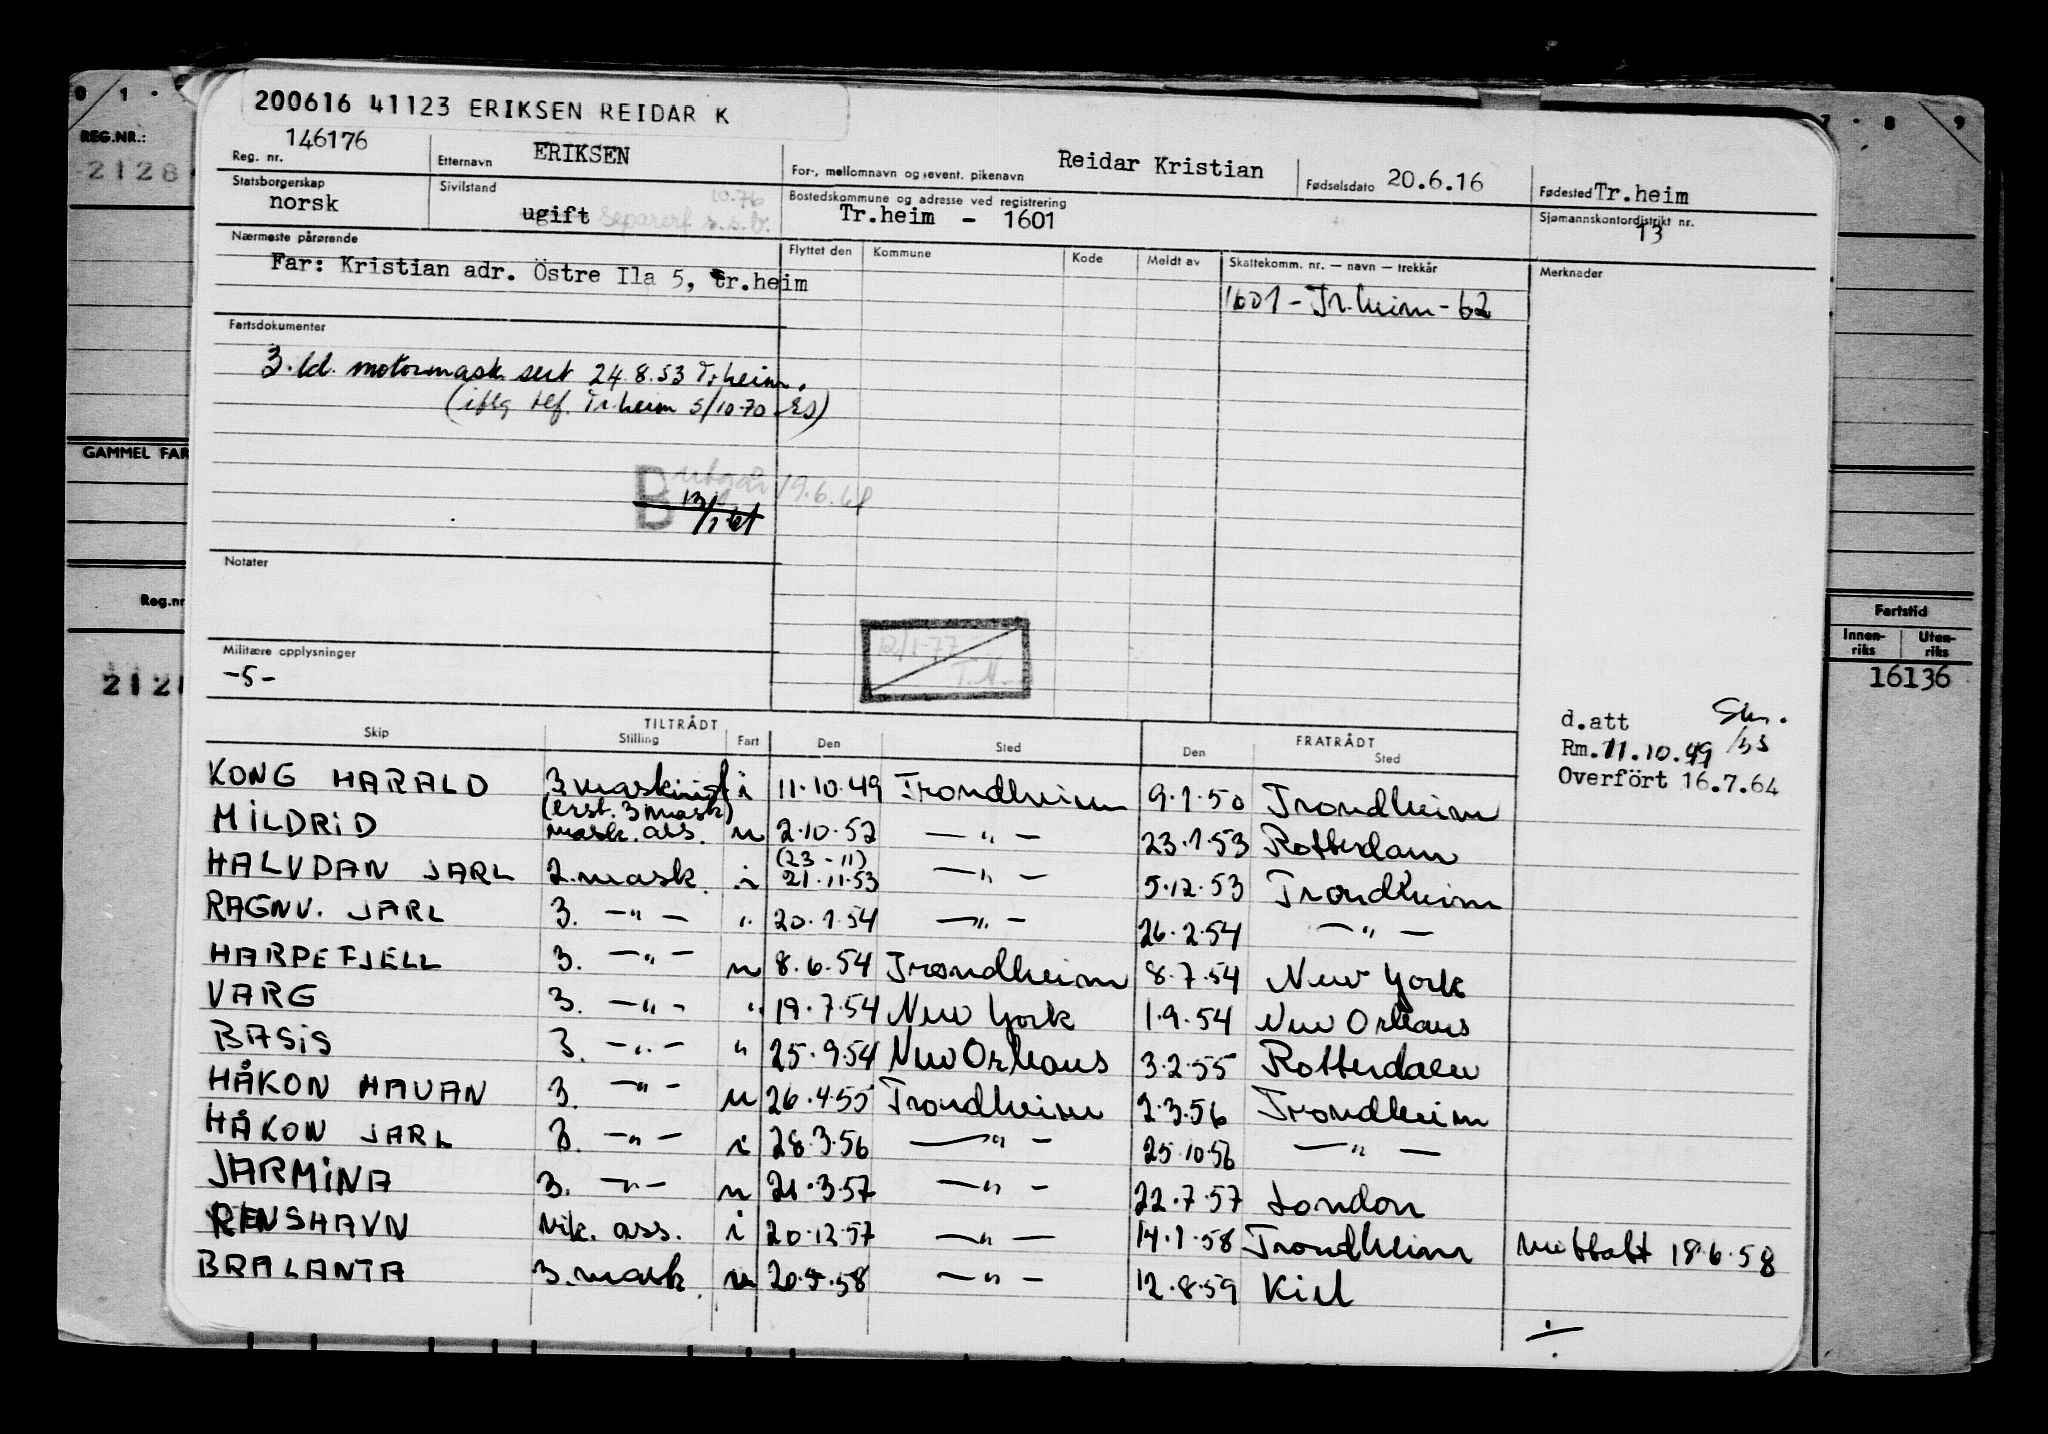 0 1 . 7 . 8 9
200616 41123 ERIKSEN REIDAR K
REG.NR.:
2128
Reg. nr. 146176 Etternavn ERIKSEN For-, mellomnavn og event. pikenavn Reidar Kristian Fødselsdato 20.6.16 Fødested Tr.heim
Statsborgerskap norsk Sivilstand ugift Separert s.s.b. 10.76 Bostedskommune og adresse ved registrering Tr.heim - 1601 Sjømannskontordistrikt nr. 13
Nærmeste pårørende Flyttet den Kommune Kode Meldt av Skattekomm. nr. — navn — trekkår Merknader
Far: Kristian adr. Östre Ila 5, tr.heim
1601 - Tr.heim - 62
Fartsdokumenter
3. kl. motormask. sert 24.8.53 Tr.heim.
(iflg tlf. Tr.heim 5/10-70 ES)
B utgår 19.6.
GAMMEL FAR
Notater
Reg.nr
12/1-77
Militære opplysninger
-5-
212
Fartstid
Innen-riks Uten-riks
16136
d.att
Rm.11.10.49
Overfört 16.7.64
TILTRÅDT FRATRÅDT
Skip Stilling Fart Den Sted Den Sted
KONG HARALD 3 maskinist i 11.10.49 Trondheim 9.1.50 Trondheim
(erst. 3 mask)
MILDRID mask. ass. u 2.10.52 —"— 23.1.53 Rotterdam
(23-11)
HALVDAN JARL 2. mask. i 21.11.53 —"— 5.12.53 Trondheim
RAGNV. JARL 3. —"— " 20.1.54 —"— 26.2.54 —"—
HARPEFJELL 3. —"— u 8.6.54 Trondheim 8.7.54 New York
VARG 3. —"— " 19.7.54 New York 1.9.54 New Orleans
BASIS 3. —"— " 25.9.54 New Orleans 3.2.55 Rotterdam
HÅKON HAUAN 3. —"— u 26.4.55 Trondheim 2.3.56 Trondheim
HÅKON JARL 3. —"— i 28.3.56 —"— 25.10.56 —"—
JARMINA 3. —"— u 21.3.57 —"— 22.7.57 London
RENSHAVN vik. ass. i 20.12.57 —"— 14.1.58 Trondheim uttatt 18.6.58
BRALANTA 3. mask. u 20.5.58 —"— 12.8.59 Kiel
÷